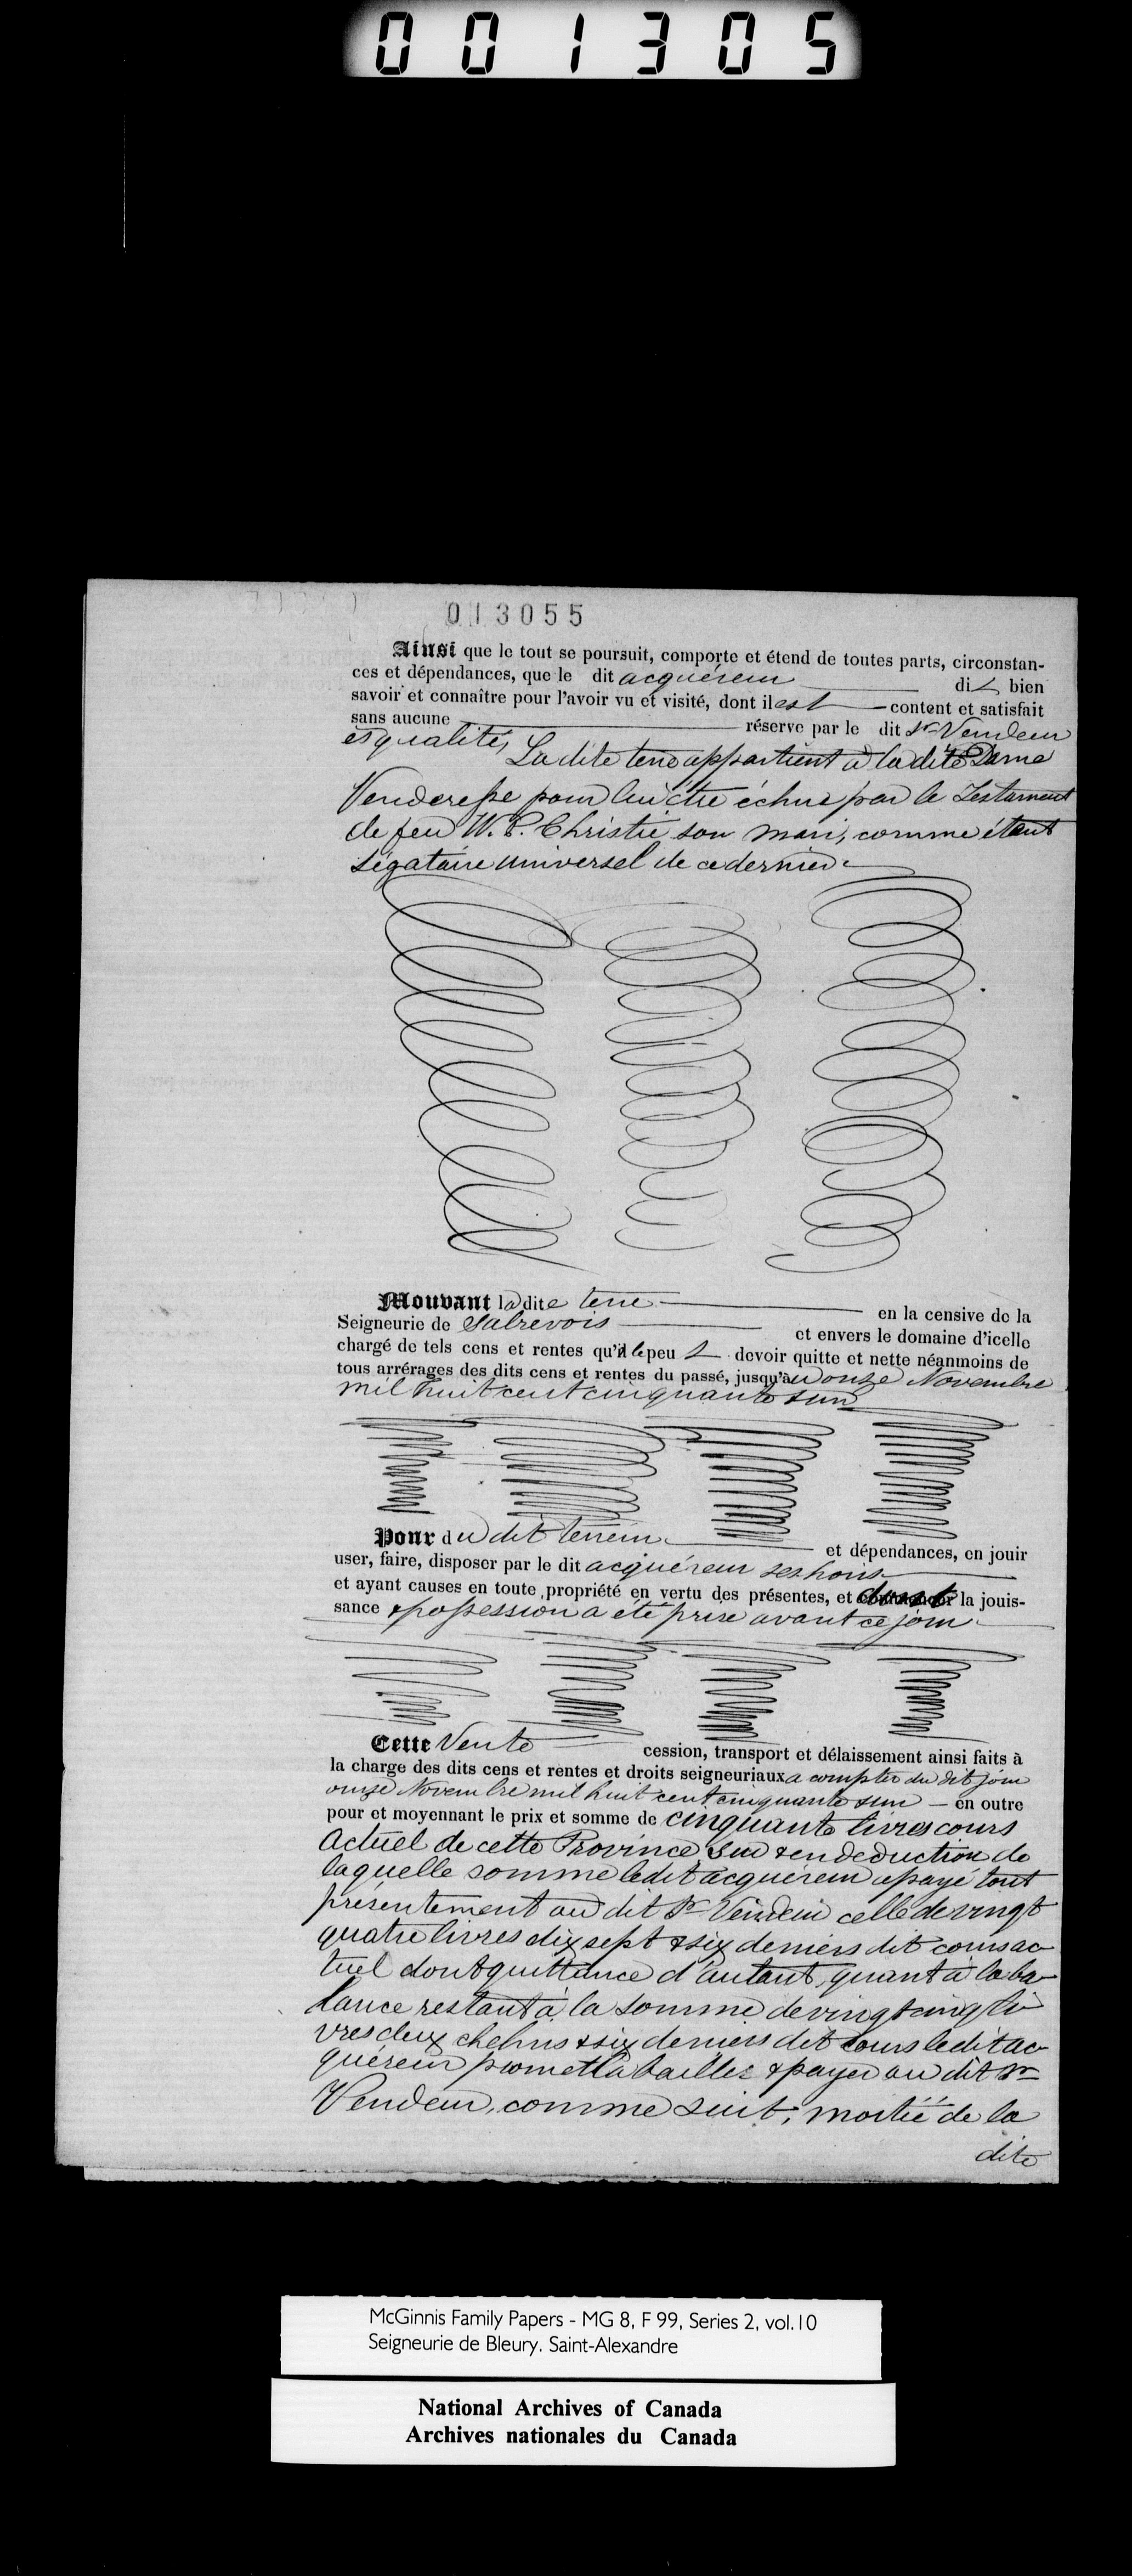 001305
013055
Ainsi que le tout se poursuit, comporte et étend de toutes parts, circonstan-
ces et dépendances, que le dit acquéreur dit bien
savoir et connaître pour l'avoir vu et visité, dont il est content et satisfait
sans aucune réserve par le dit Sr Vendeur
esqualités, La dite terre appartient à la dite Dame
Venderesse pour lui être échue par le Testament
de feu W. P. Christie son mari, comme étant
Légataire universel de ce dernier
Mouvant la dite terre en la censive de la
Seigneurie de Sabrevois et envers le domaine d'icelle
chargé de tels cens et rentes qu'il peut devoir quitte et nette néanmoins de
tous arrérages des dits cens et rentes du passé, jusqu'au onze Novembre
mil huit cent cinquante & un
Pour du dit terrein et dépendances, en jouir
user, faire, disposer par le dit acquéreur ses hoirs
et ayant causes en toute propriété en vertu des présentes, et dont la jouis-
sance & possession a été prise avant ce jour
Cette Vente cession, transport et délaissement ainsi faits à
la charge des dits cens et rentes et droits seigneuriaux a compter du dit jour
onze Novembre mil huit cent cinquante & un en outre
pour et moyennant le prix et somme de cinquante livres cours
actuel de cette Province, sur & en deduction de
laquelle somme le dit acquéreur a payé tout
présentement au dit Sr Vendeur celle de vingt
quatre livres dix sept & six deniers dit cours ac
tuel dont quittance d'autant, quant à la ba
lance restant à la somme de vingt cinq li
vres deux chelins & six deniers dit cours le dit ac
quéreur promet la bailler & payer au dit Sr
Vendeur, comme suit, moitié de la
dite
McGinnis Family Papers - MG 8, F 99, Series 2, vol.10
Seigneurie de Bleury. Saint-Alexandre
National Archives of Canada
Archives nationales du Canada